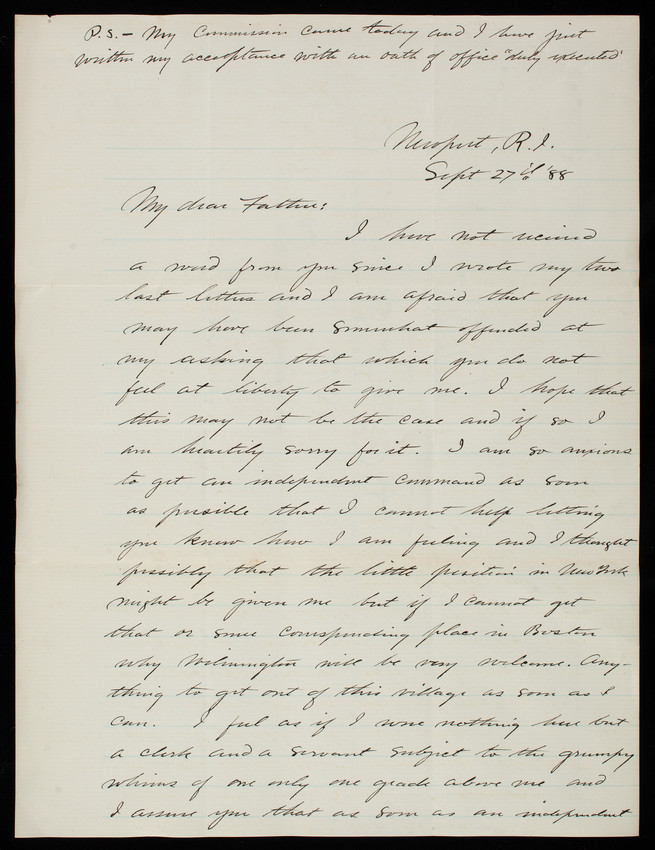 P.S. – My Commission came today and I have just
written my acceptance with an oath of office "duly executed"
Newport, R.I.
Sept 27th '88
My dear Father:
I have not received
a word from you since I wrote my two
last letters and I am afraid that you
may have been somewhat offended at
my asking that which you do not
feel at liberty to give me. I hope that
this may not be the case and if so I
am heartily sorry for it. I am so anxious
to get an independent command as soon
as possible that I cannot help letting
you know how I am feeling and I thought
possibly that the little position in New York
might be given me but if I cannot get
that or some corresponding place in Boston
why Wilmington will be very welcome. Any-
thing to get out of this village as soon as I
can. I feel as if I were nothing here but
a clerk and a servant subject to the grumpy
whims of one only one grade above me and
I assure you that as soon as an independent